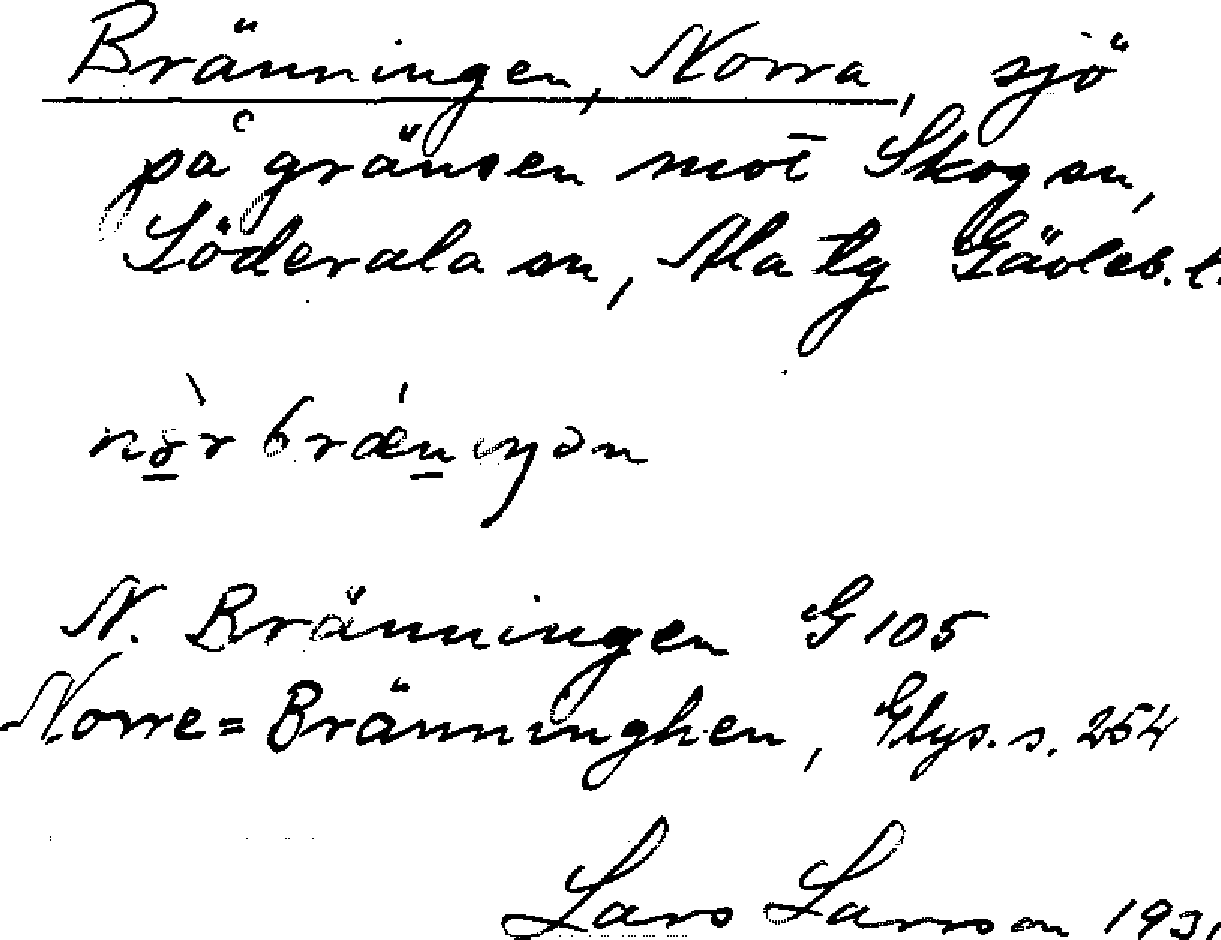 Bränningen, Norra, sjö
på gränsen mot Skog sn,
Söderala sn, Ala tg Gävleb. l.
N. Bränningen G 105
Norre=Bränninghen, Glys. s. 254
Lars Larsson 1931